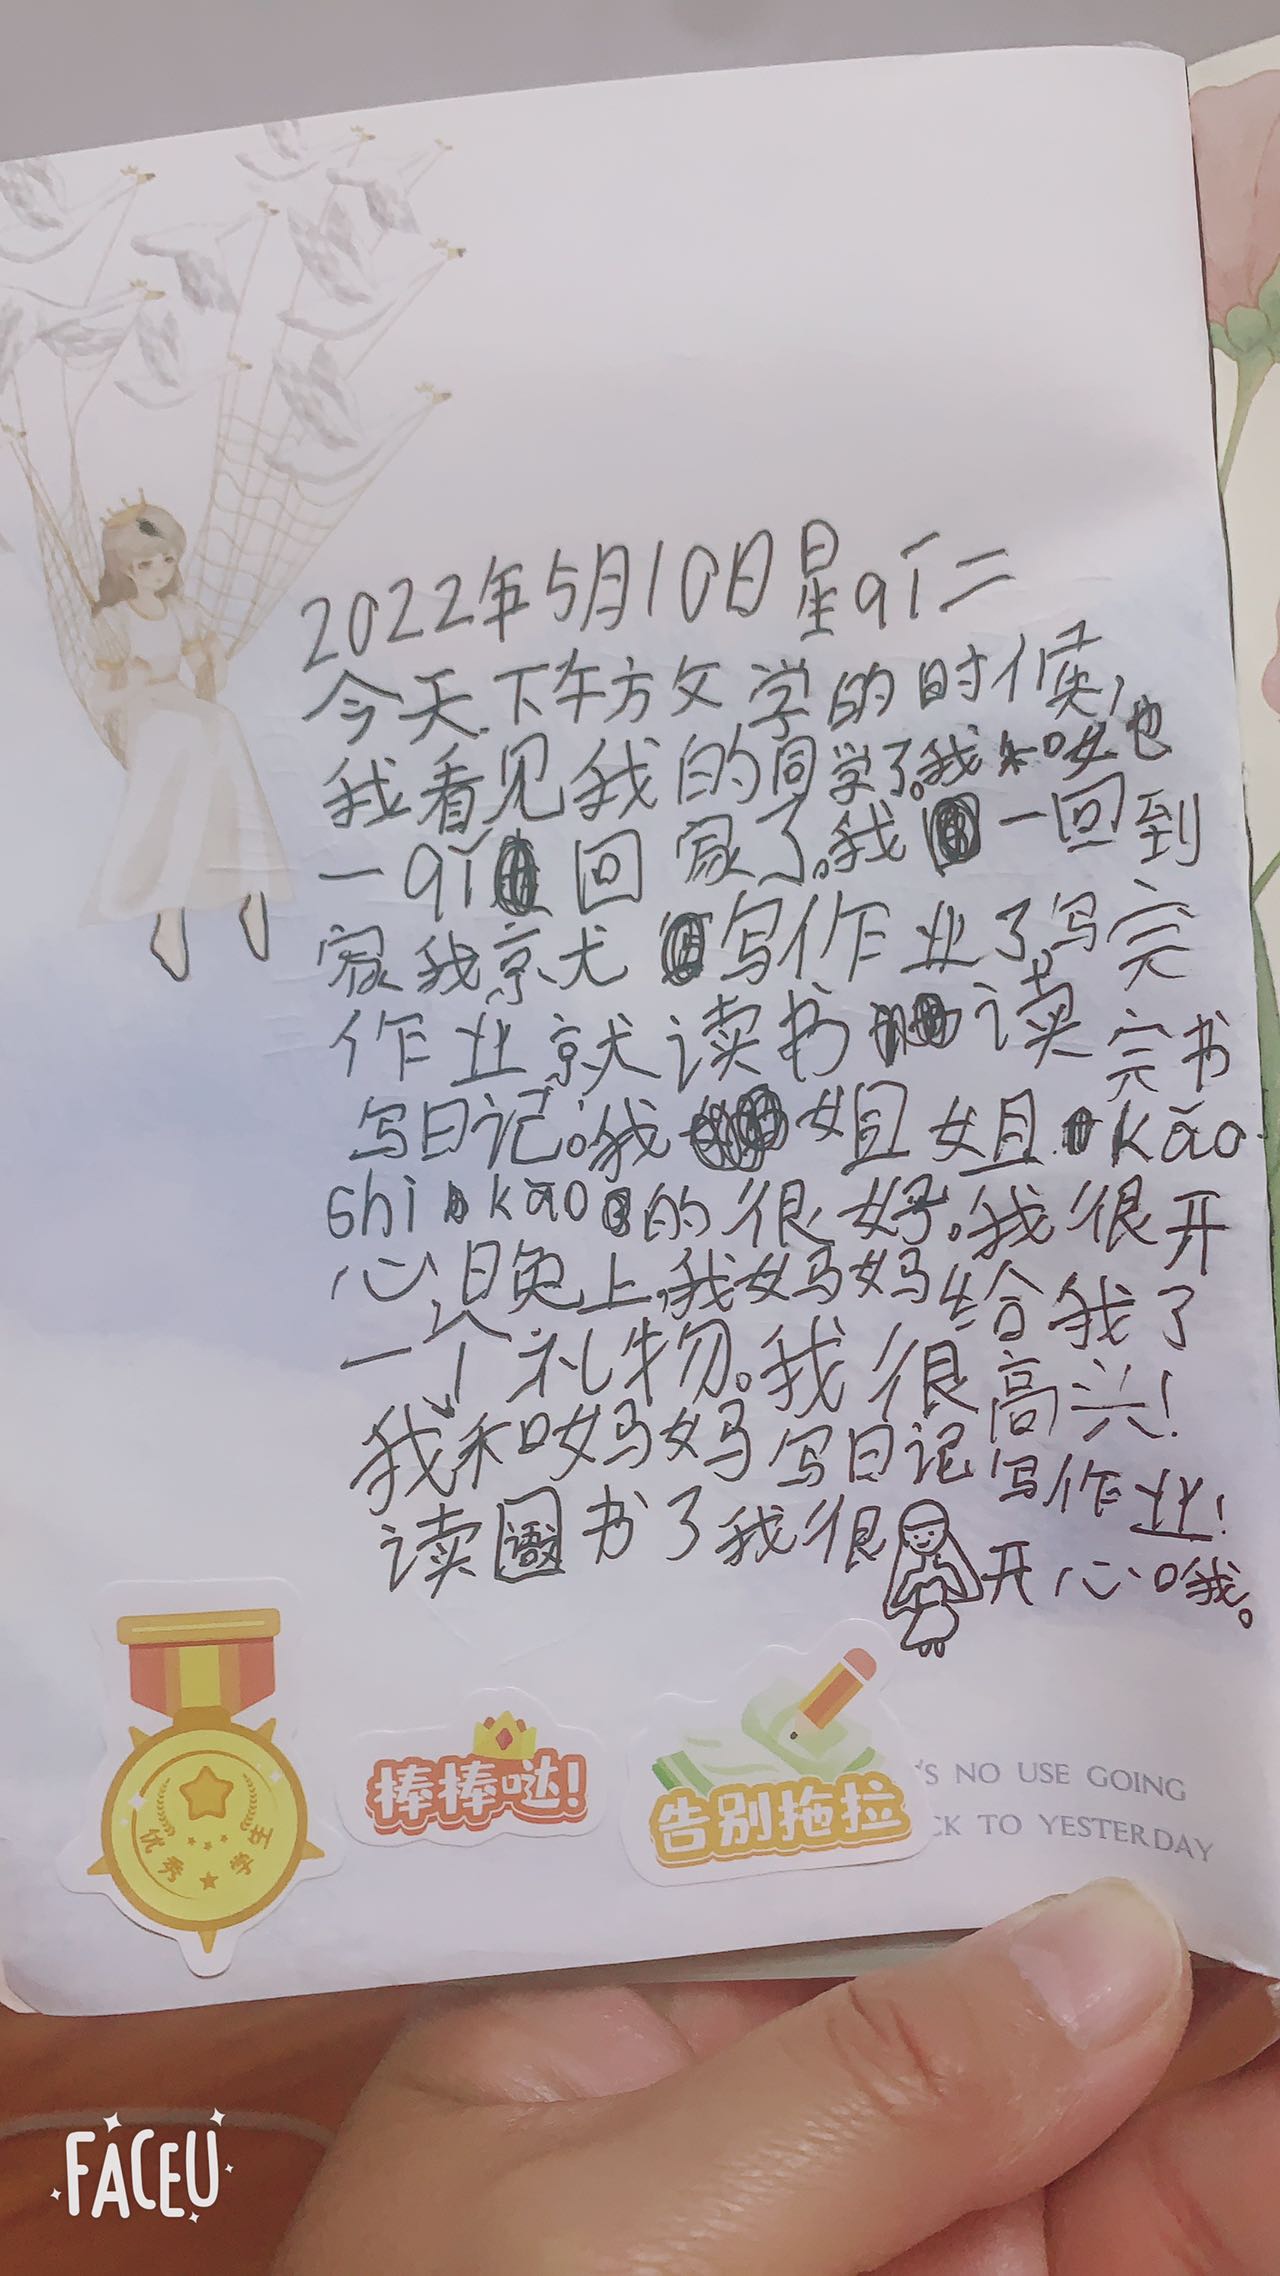 2022年5月10日星qī二
今天下午方文学的时候,
我看见我的同学了。我和她
一qī回家了。我一回到
家我就写作业了写完
作业就读书读完书
写日记。我姐姐kǎo
shìkǎo的很好。我很开
心晚上,我妈妈给我了
一个礼物。我很高兴!
我和妈妈写日记写作业!
读图书了我很开心哦。
优秀学生
棒棒哒!
告别拖拉
'S NO USE GOING
CK TO YESTERDAY
FACEU